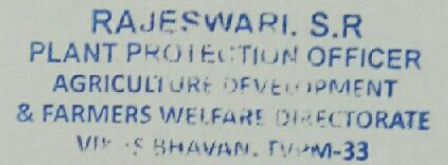 RAJESWARI. S.R
PLANT PROTECTION OFFICER
AGRICULTURE DEVELOPMENT
& FARMERS WELFARE DIRECTORATE
VIKAS BHAVAN. TVPM-33